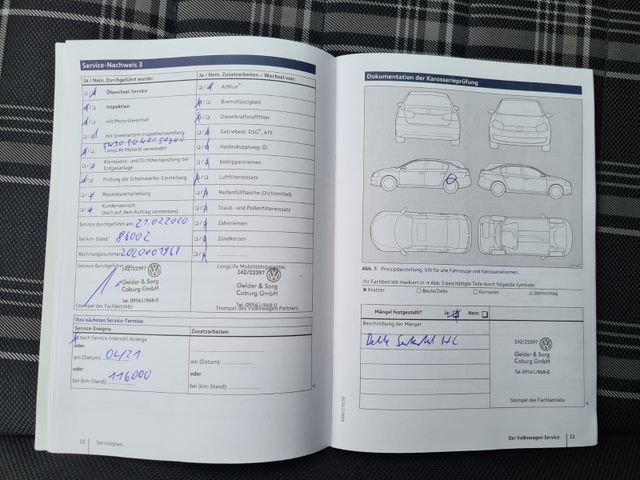 Service-Nachweis 3
Ja / Nein. Durchgeführt wurde:
Ölwechsel-Service
Inspektion
mit Motorölwechsel
mit erweitertem Inspektionsumfang
LongLife Motoröl verwendet
Korrosions- und Dichtheitsprüfung der
Erdgasanlage
Prüfung der Scheinwerfer-Einstellung
Reparaturempfehlung
Kundenwunsch
(auch auf dem Auftrag vermerken)
Service durchgeführt am: 21.02.2020
bei km-Stand: 86002
Rechnungsnummer: 2020001968
Service durchgeführt
142/22397
Gelder & Sorg
Coburg GmbH
Tel. 09561/868-0
Stempel des Fachbetriebs
Ja / Nein. Zusatzarbeiten – Wechsel von:
AdBlue®
Bremsflüssigkeit
Dieselkraftstofffilter
Getriebeöl: DSG®, ATF
Haldexkupplung: Öl
Keilrippenriemen
Luftfiltereinsatz
Reifenfüllflasche (Dichtmittel)
Staub- und Pollenfiltereinsatz
Zahnriemen
Zündkerzen
LongLife Mobilitätsgarantie:
142/22397
Gelder & Sorg
Coburg GmbH
Tel. 09561/868-0
Stempel des Volkswagen Partners
Ihre nächsten Service-Termine
Service-Ereignis
Zusatzarbeiten
nach Service-Intervall-Anzeige
oder
am (Datum): 04/21
am (Datum):
oder
oder
bei (km-Stand): 116000
bei (km-Stand):
10
Serviceplan
Dokumentation der Karosserieprüfung
Abb. 5 Prinzipdarstellung. Gilt für alle Fahrzeuge und Karosserieformen.
Ihr Fachbetrieb markiert in → Abb. 5 beschädigte Teile durch folgende Symbole:
✕ Kratzer ○ Beule/Delle □ Korrosion △ Steinschlag
Mängel festgestellt? Ja: Nein:
Beschreibung der Mängel:
Delle HL
142/22397
Gelder & Sorg
Coburg GmbH
Tel. 09561/868-0
Stempel des Fachbetriebs
Der Volkswagen Service
11